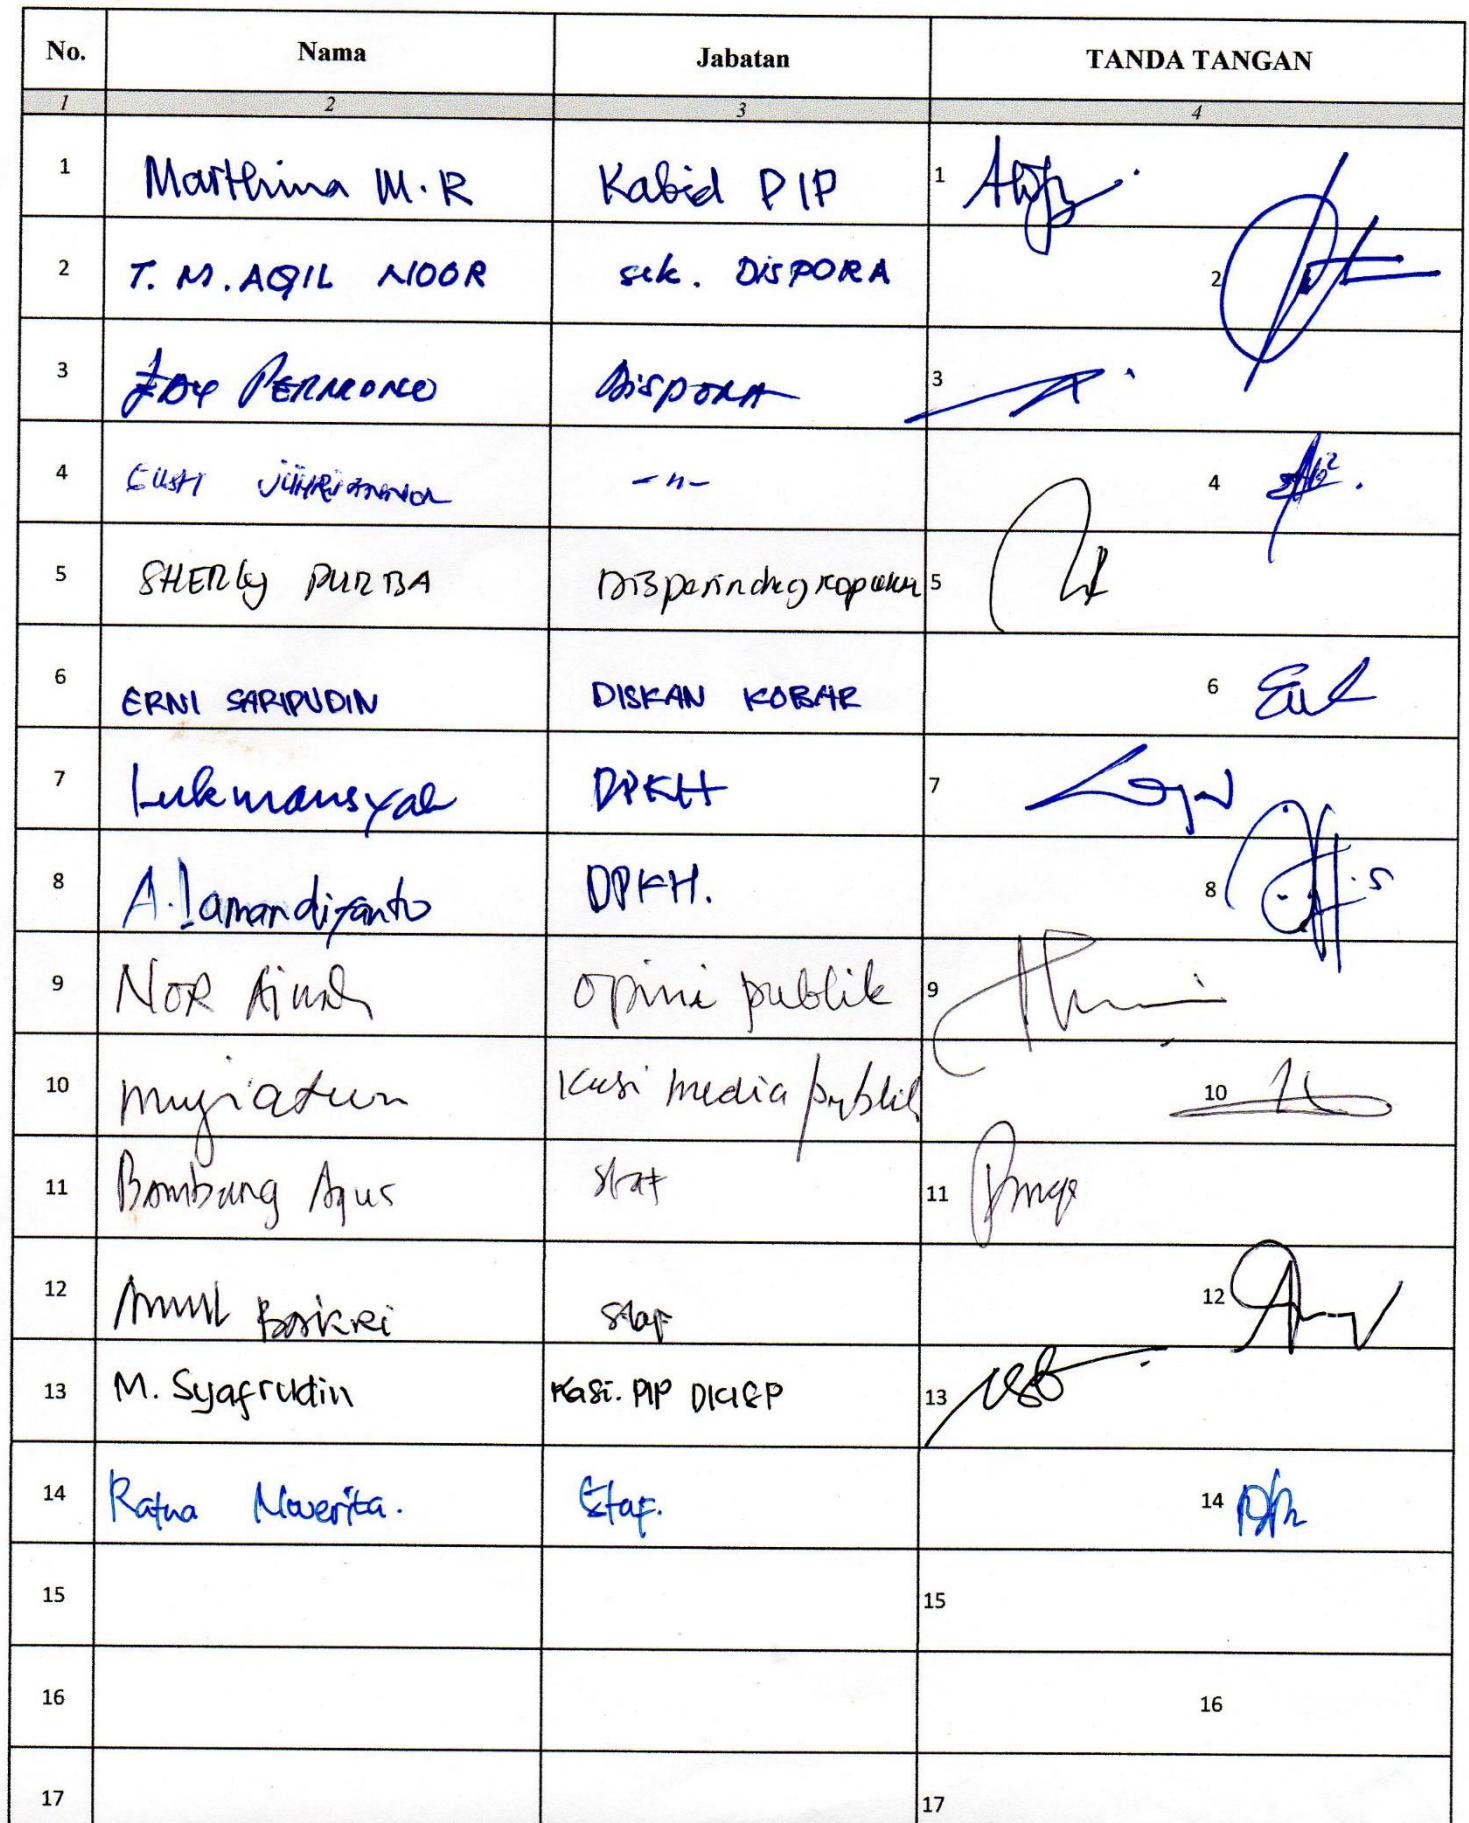 No. Nama Jabatan TANDA TANGAN
1 2 3 4
1 Marthina M.R Kabid PIP 1
2 T. M. AQIL NOOR sek. DISPORA 2
3 PERMONO DISPORA 3
4 -"- 4
5 SHERly PURBA 5
6 ERNI SARIPUDIN DISKAN KOBAR 6
7 Lukmansyah DPKH 7
8 A. Lamandiyanto DPKH. 8
9 NOR opini publik 9
10 mujiatun Kasi media publik 10
11 Bambang Agus Staf 11
12 Staf 12
13 M. Syafrudin Kasi. PIP 13
14 Ratna Noverita. Staf. 14
15 15
16 16
17 17